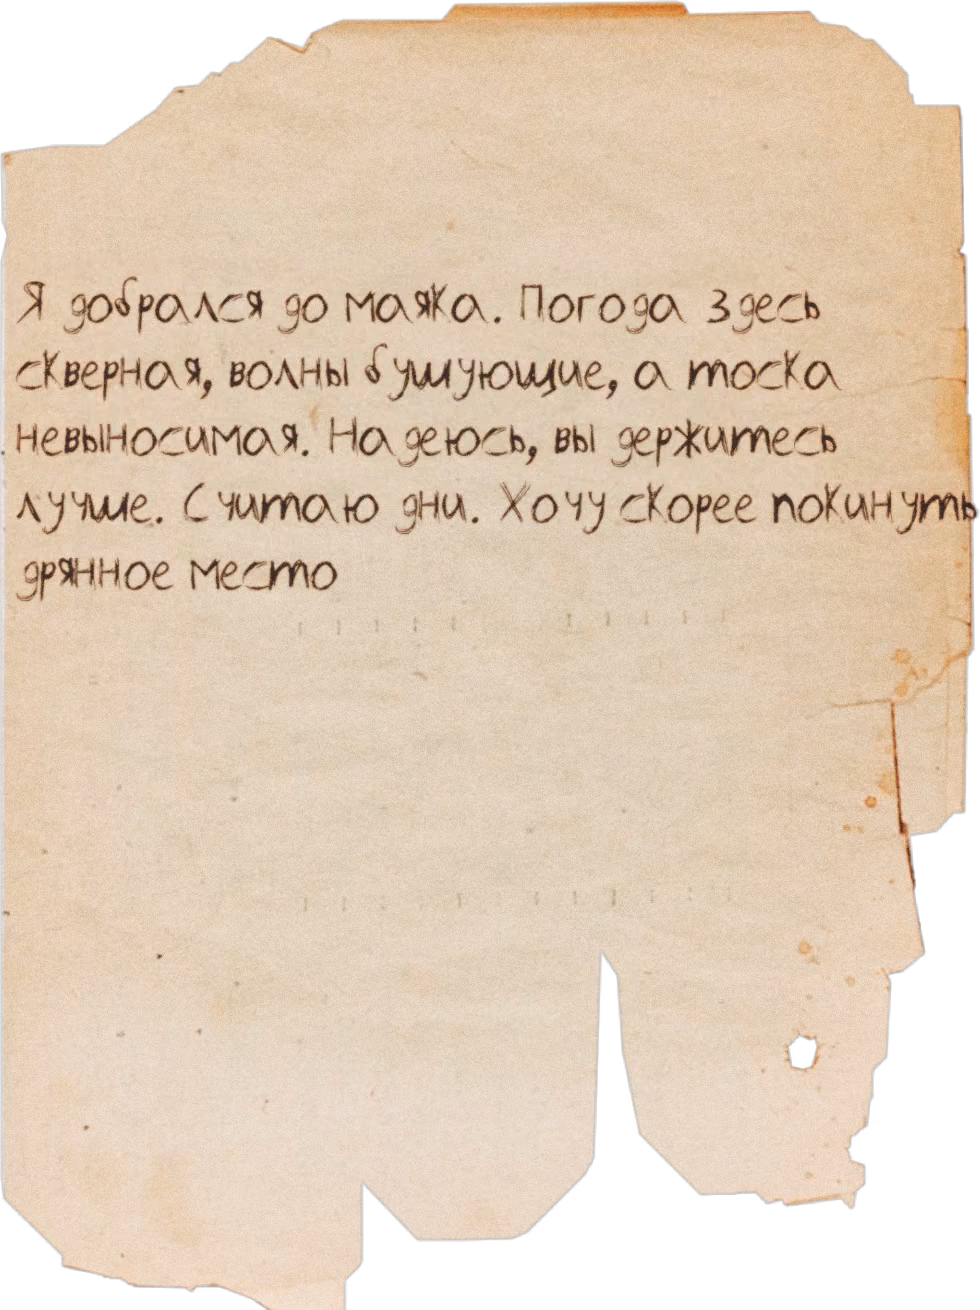 Я добрался до маяка. Погода здесь
скверная, волны бушующие, а тоска
невыносимая. Надеюсь, вы держитесь
лучше. Считаю дни. Хочу скорее покинуть
дрянное место